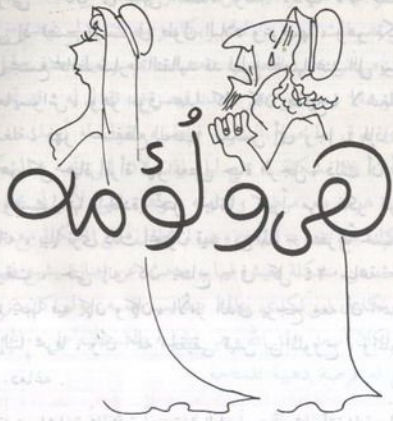 هى و لُؤمه